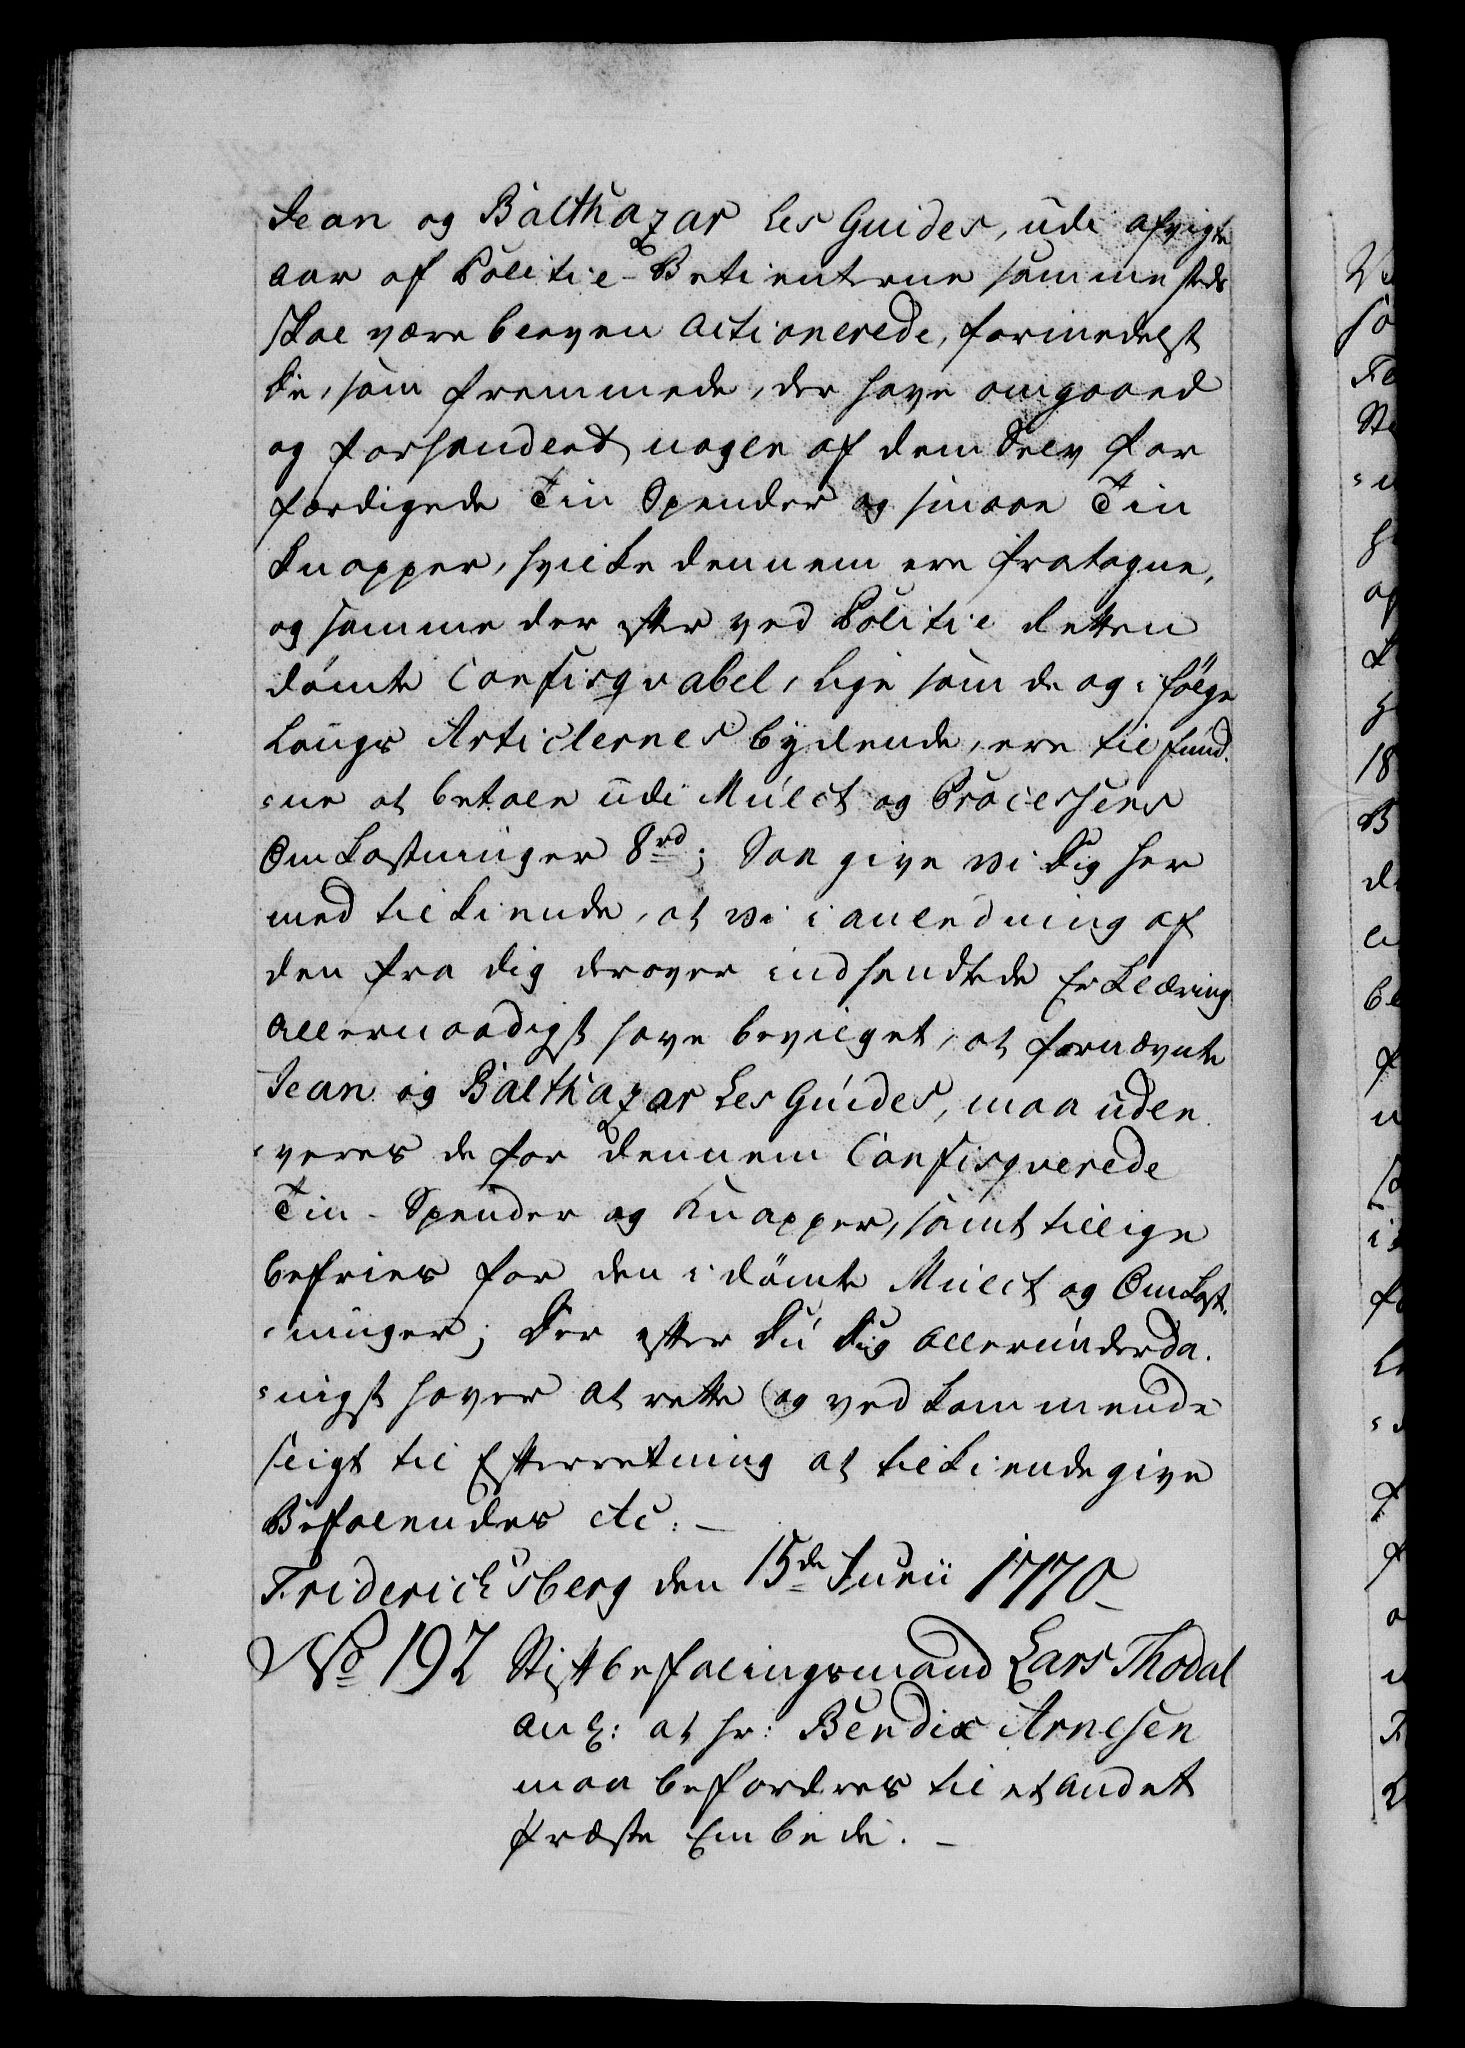 Jean og Balthazar Les Guides, udi afvigte
Aar af Politie-Betienterne sammesteds
skal være bleven actionerede, formedelst
De, som fremmede, der have omgaaed
og forhandlet nogle af dem Selv for
færdigede Tin Spender og smaae Tin
Knapper, hvilke dennem ere fratagne,
og samme der efter ved Politie Retten
dömte Confisqvabel, lige som de og i fölge
Laugs Articlernes bydende, ere tilfund-
=ne at betale udi Mulct og Processens
Omkostninger 8rd; Saa give vi Dig her
med tilkiende, at vi i anledning af
den fra dig derover indsendte Erklæring
allernaadigst have bevilget, at fornævnte
Jean og Balthazar Les Guides, maa udle-
=veres de for dennem Confisqverede
Tin-Spender og Knapper, samt tillige
befries for den idömte Mulct og Omkost-
=ninger; Der efter Du Dig allerunderda-
=nigst haver at rette og vedkommende
sligt til Efterretning at tilkiendegive
Befalendes etc. –
Friderichsberg den 15de Junii 1770
No 192 Stiftbefalingsmand Lars Thodal
anl: at hr: Bendix Arnesen
maa befordres til et andet
Præste Embede. –